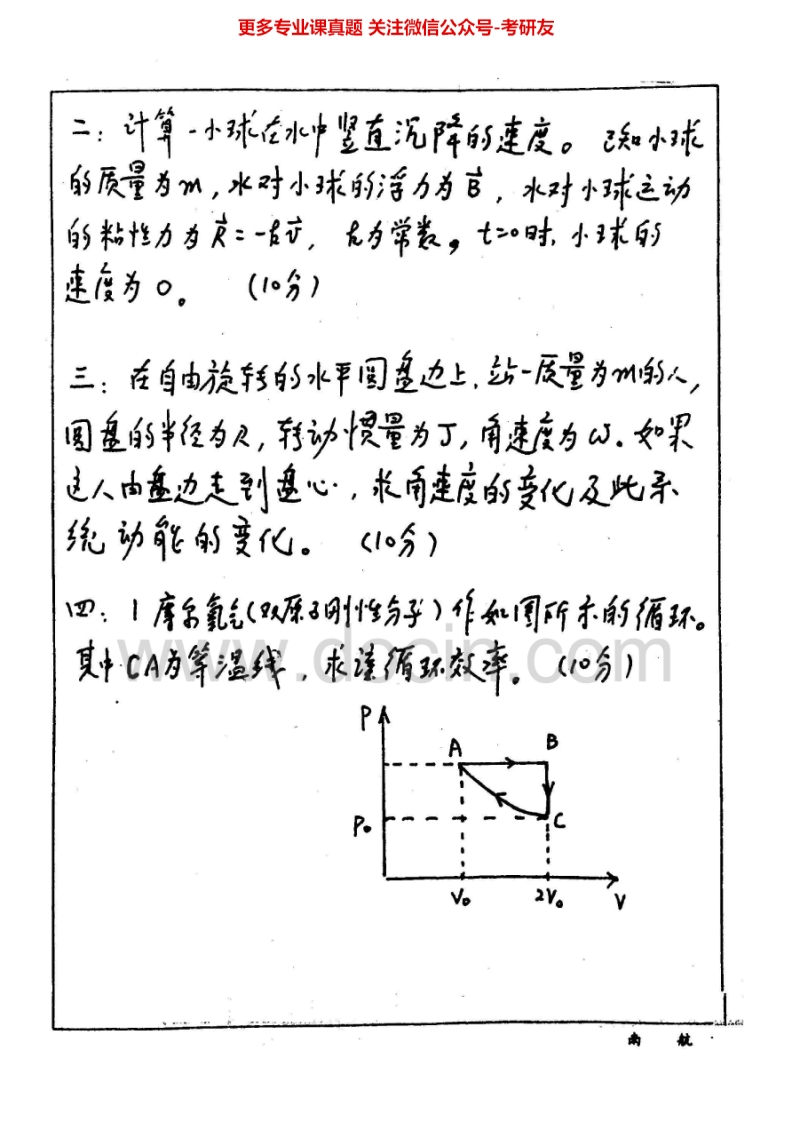 更多专业课真题 关注微信公众号-考研友
二：计算一小球在水中竖直沉降的速度。已知小球
的质量为m，水对小球的浮力为B⃗，水对小球运动
的粘性力为R⃗=-kv⃗，k为常数，t=0时，小球的
速度为0。 （10分）
三：在自由旋转的水平圆盘边上，站一质量为m的人，
圆盘的半径为R，转动惯量为J，角速度为ω。如果
这人由盘边走到盘心，求角速度的变化及此系
统动能的变化。 （10分）
四：1摩尔氧气（双原子刚性分子）作如图所示的循环。
www.docin.com
其中CA为等温线，求该循环效率。（10分）
P
A B
P₀ C
V₀ 2V₀ V
南 航